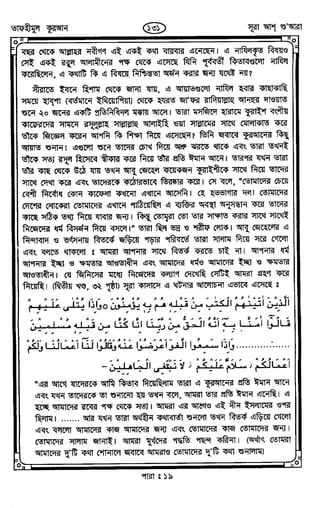 তাফহীমুল কুরআন
১৩১
সূরা আশ্ শু'আরা
বছর থেকে আল্লাহর নবীগণ এই একই কথা বারবার এনেছেন। এ নাযিলকৃত বিষয়ও
সেই একই রব্বুল আলামীনের পক্ষ থেকে এসেছে যিনি পূর্ববর্তী কিতাবগুলো নাযিল
করেছিলেন, এ কথাটি কি এ বিষয়ে নিশ্চিন্ততা অর্জন করার জন্য যথেষ্ট নয়?
সীরাতে ইবনে হিশাম থেকে জানা যায়, এ আয়াতগুলো নাযিল হবার কাছাকাছি
সময়ে হাবশা (বর্তমানে ইথিয়োপিয়া) থেকে হযরত জা'ফর রাদিয়াল্লাহু আনহুর দাওয়াত
শুনে ২০ জনের একটি প্রতিনিধিদল মক্কায় আসে। তারা মসজিদে হারামে কুরাইশ বংশীয়
কাফেরদের সামনে রসূলুল্লাহ সাল্লাল্লাহু আলাইহি ওয়া সাল্লামের সাথে মোলাকাত করে
তাঁকে জিজ্ঞেস করেন আপনি কি শিক্ষা নিয়ে এসেছেন? তিনি জবাবে কুরআনের কিছু
আয়াত শুনান। এগুলো শুনে তাদের চোখ দিয়ে অশ্রু ঝরতে থাকে এবং তারা তখনই
তাঁকে সত্য রসূল হিসেবে স্বীকার করে নিয়ে তাঁর প্রতি ঈমান আনে। তারপর যখন তারা
তাঁর কাছ থেকে উঠে যায় তখন আবু জেহেল কয়েকজন কুরাইশীকে সাথে নিয়ে তাদের
সাথে দেখা করে এবং তাদেরকে কঠোরভাবে তিরস্কার করে। সে বলে, "তোমাদের চেয়ে
বেশী নির্বোধ কোন কাফেলা কখনো এখানে আসেনি। হে হতভাগার দল! তোমাদের
দেশের লোকেরা তোমাদের এখানে পাঠিয়েছিল এ ব্যক্তির অবস্থা অনুসন্ধান করে তাদের
কাছে সঠিক তথ্য নিয়ে যাবার জন্য। কিন্তু তোমরা তো তার সাক্ষাত করার সাথে সাথেই
নিজেদের ধর্ম বিসর্জন দিয়ে বসলে।" তারা ছিল ভদ্র ও শরীফ লোক। আবু জেহেলের এ
নিন্দাবাদ ও ভর্ৎসনায় বিতর্কে জড়িয়ে পড়ার পরিবর্তে তারা সালাম দিয়ে সরে গেলো
এবং বলতে থাকলো ঃ আমরা আপনার সাথে বিতর্ক করতে চাই না। আপনার ধর্ম
আপনার ইচ্ছা ও ক্ষমতার আওতাধীন এবং আমাদের ধর্মও আমাদের ইচ্ছা ও ক্ষমতার
আওতাধীন। যে জিনিসের মধ্যে নিজেদের কল্যাণ দেখেছি সেটিই আমরা গ্রহণ করে
নিয়েছি। (দ্বিতীয় খণ্ড, ৩২ পৃষ্ঠা) সূরা কাসাসে এ ঘটনার আলোচনা এভাবে এসেছে ঃ
الَّذِينَ اٰتَيْنٰهُمُ الْكِتٰبَ مِنْ قَبْلِهٖ هُمْ بِهٖ يُؤْمِنُوْنَ ۞ وَاِذَا يُتْلٰى عَلَيْهِمْ
قَالُوْا اٰمَنَّا بِهٖ اِنَّهُ الْحَقُّ مِنْ رَّبِّنَا اِنَّا كُنَّا مِنْ قَبْلِهٖ مُسْلِمِيْنَ
.............وَاِذَا سَمِعُوا اللَّغْوَ اَعْرَضُوْا عَنْهُ وَقَالُوْا لَنَا اَعْمَالُنَا وَلَكُمْ
اَعْمَالُكُمْ ز سَلٰمٌ عَلَيْكُمْ ز لَا نَبْتَغِى الْجَاهِلِيْنَ -
"এর আগে যাদেরকে আমি কিতাব দিয়েছিলাম তারা এ কুরআনের প্রতি ঈমান আনে
এবং যখন তাদেরকে তা শুনানো হয় তখন বলে, আমরা তার প্রতি ঈমান এনেছি। এ
হচ্ছে আমাদের রবের পক্ষ থেকে সত্য। আমরা এর আগেও এই দীন ইসলামের ওপর
ছিলাম। ....... আর যখন তারা অর্থহীন কথাবার্তা শুনলো তখন বিতর্ক এড়িয়ে গেলো
এবং বললো আমাদের কাজ আমাদের জন্য এবং তোমাদের কাজ তোমাদের জন্য।
তোমাদের সালাম জানাই। আমরা মূর্খদের পদ্ধতি পছন্দ করিনা। (অর্থাৎ তোমরা
আমাদের দু'টি কথা শোনালে জবাবে আমরাও তোমাদের দু'টি কথা শুনালাম)
পারা ঃ ১৯